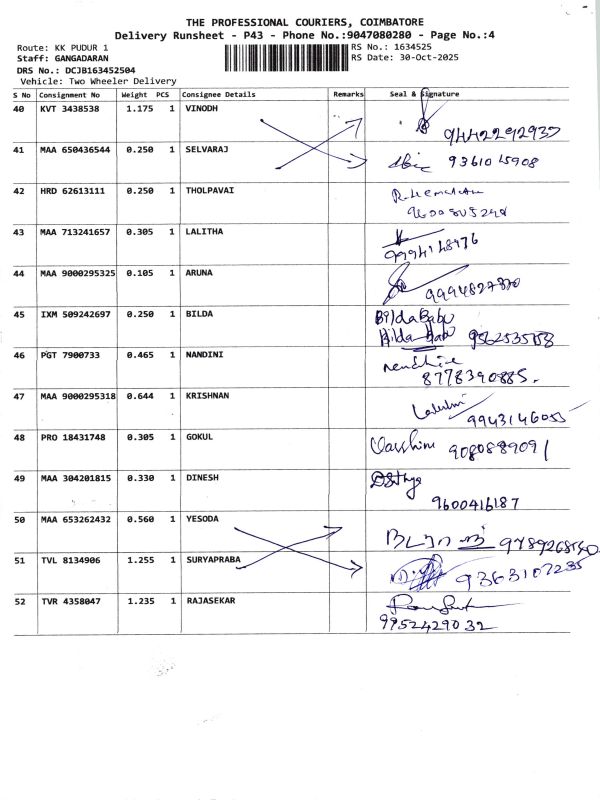 THE PROFESSIONAL COURIERS, COIMBATORE
Delivery Runsheet - P43 - Phone No.:9047080280 - Page No.:4
Route: KK PUDUR 1
RS No.: 1634525
Staff: GANGADARAN
RS Date: 30-Oct-2025
DRS No.: DCJB163452504
Vehicle: Two Wheeler Delivery
S No Consignment No Weight PCS Consignee Details Remarks Seal & Signature
40 KVT 3438538 1.175 1 VINODH
9442292937
41 MAA 650436544 0.250 1 SELVARAJ 9361015908
42 HRD 62613111 0.250 1 THOLPAVAI
43 MAA 713241657 0.305 1 LALITHA
9994148976
44 MAA 9000295325 0.105 1 ARUNA
9994827370
45 IXM 509242697 0.250 1 BILDA Bilda Babu
Bilda Babu
46 PGT 7900733 0.465 1 NANDINI
8778390885.
47 MAA 9000295318 0.644 1 KRISHNAN Lakshmi
9943146055
48 PRO 18431748 0.305 1 GOKUL Varshini 9080889091
49 MAA 304201815 0.330 1 DINESH
9600416187
50 MAA 653262432 0.560 1 YESODA
51 TVL 8134906 1.255 1 SURYAPRABA 9363107235
52 TVR 4358047 1.235 1 RAJASEKAR
9952429032